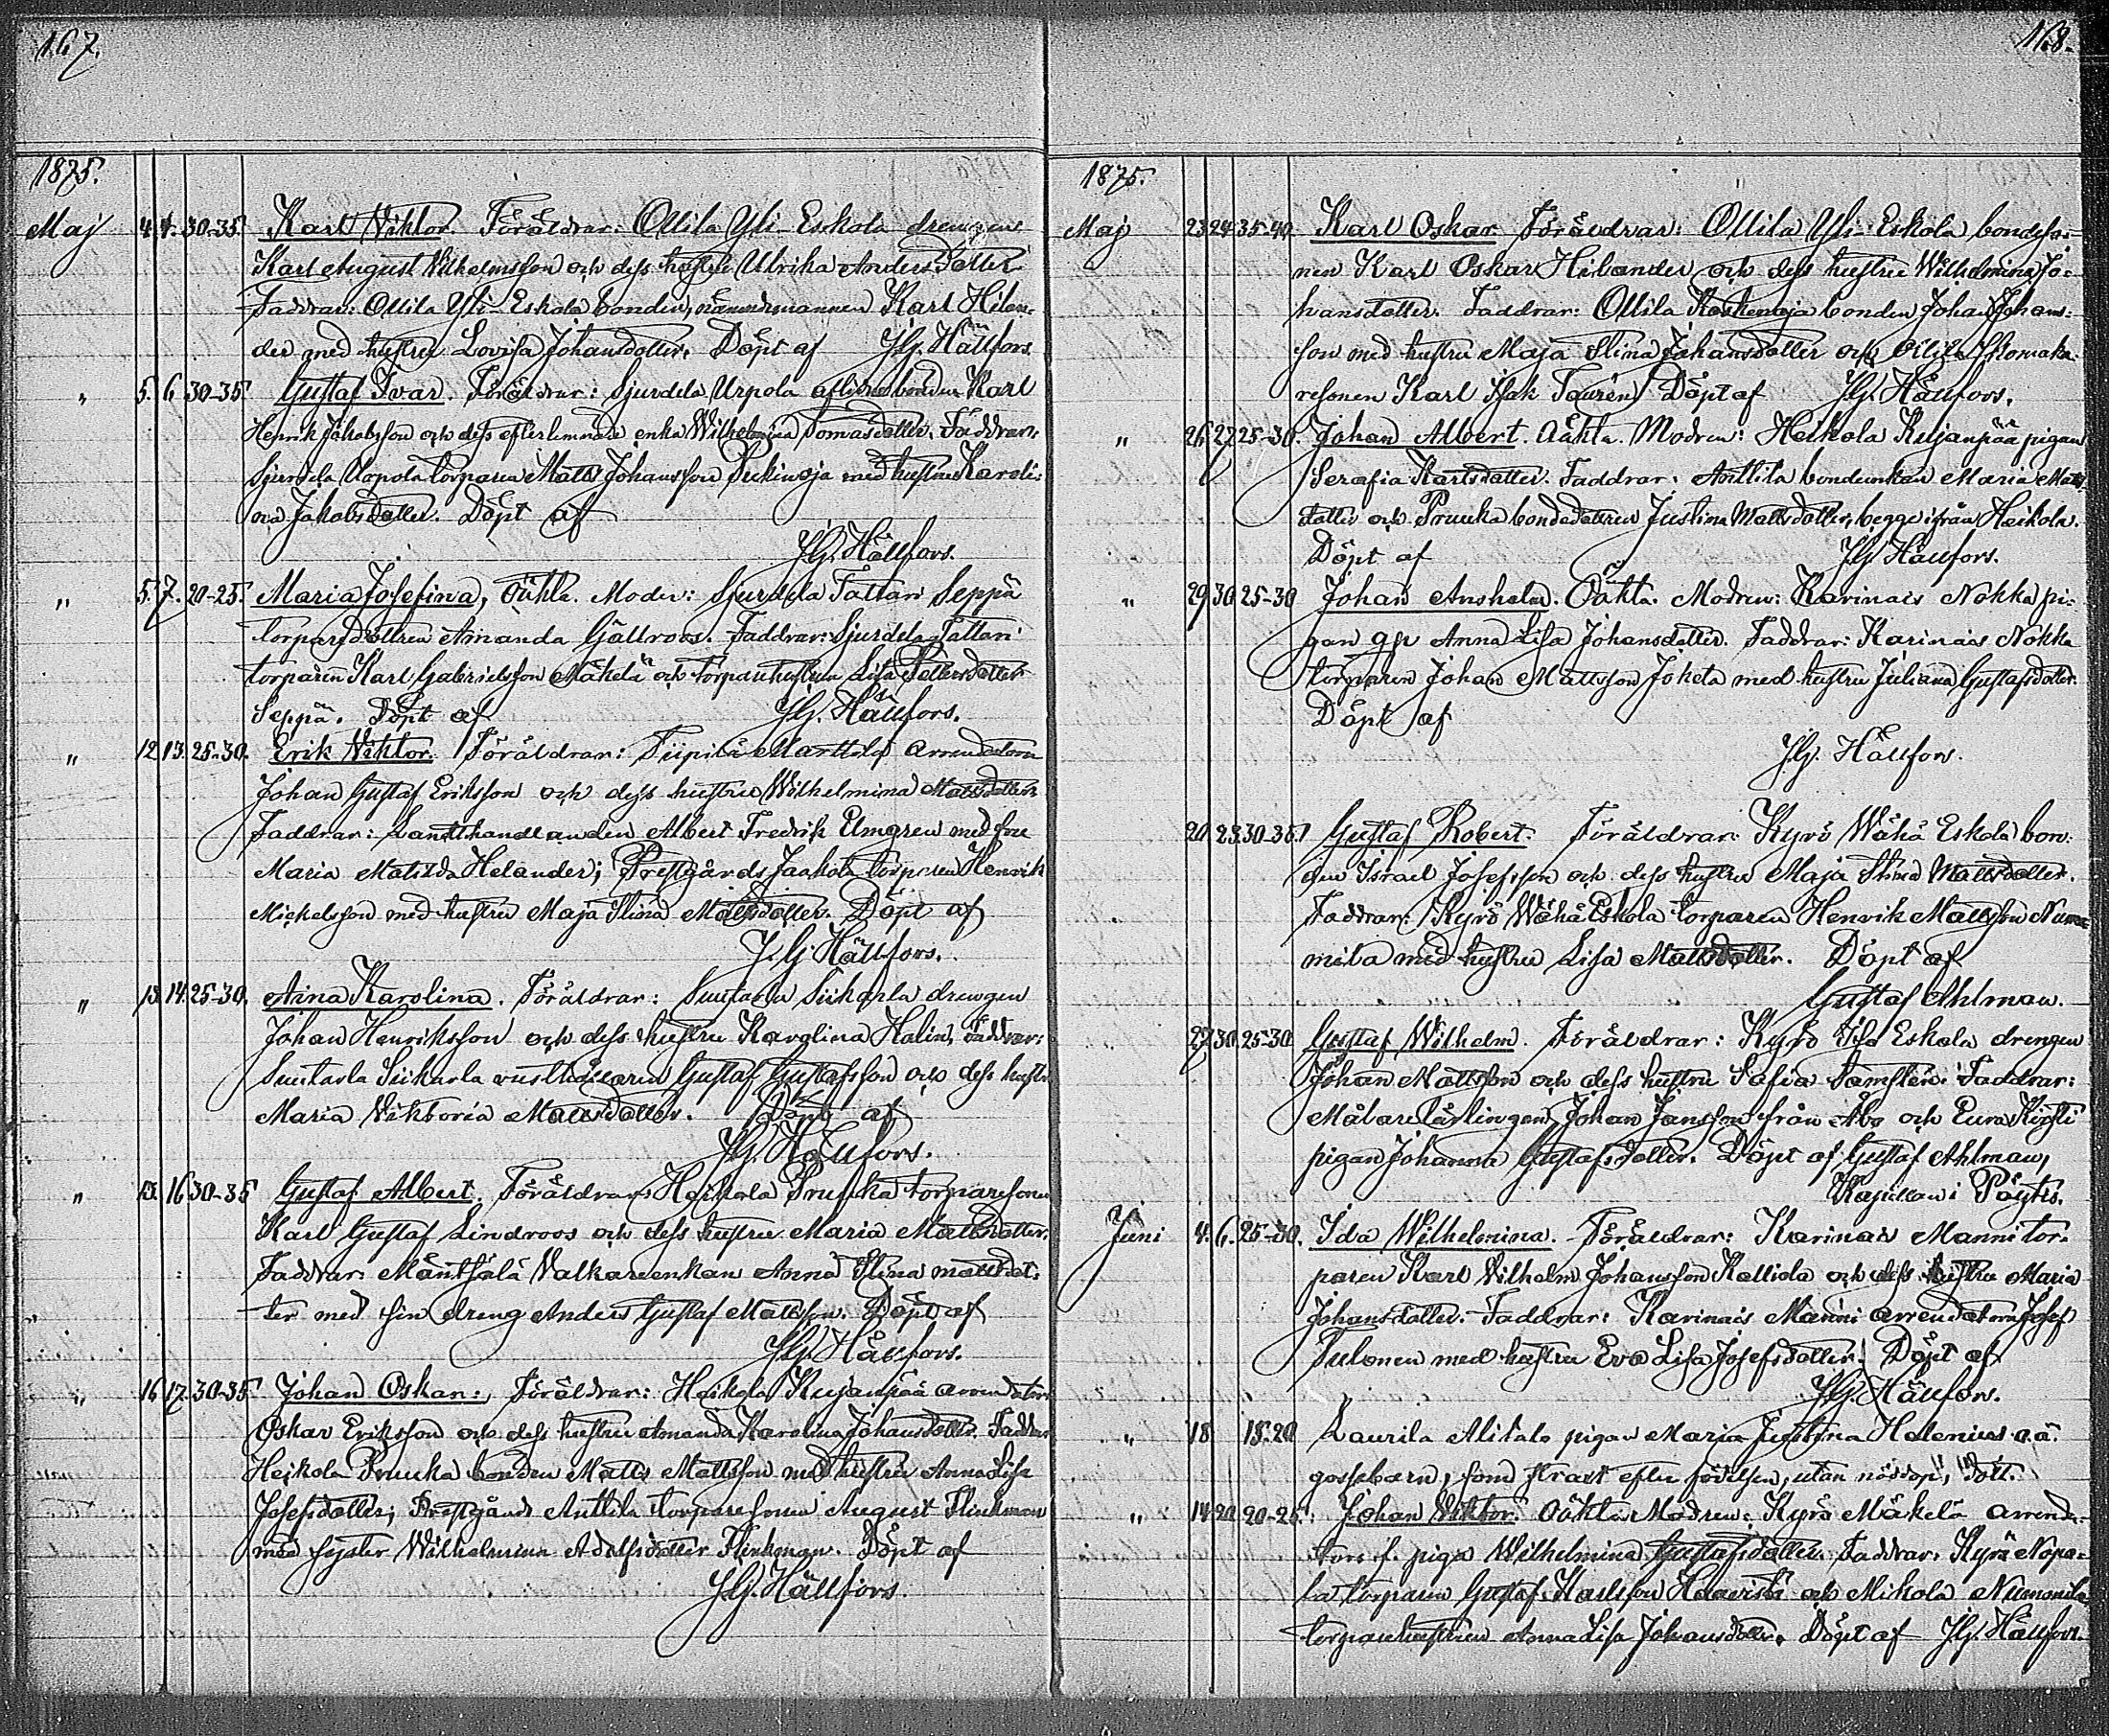 167.
1875.
Maj 4. 4. 30-35. Karl Viktor. Föräldrar: Ollila Yli-Eskola drengen
Karl August Vilhelmsson och dess hustru Ulrika Andersdotter
Faddrar: Ollila Yli-Eskola bonden, nämndemannen Karl Hilan-
der med hustru Lovisa Johansdotter. Döpt af J.G. Hällfors.
" 5. 6. 30-35. Gustaf Ivar. Föräldrar: Sjurdela Urpola aflidne bonden Karl
Henrik Jakobsson och dess efterlemnade enka Wilhelmina Tomasdotter. Faddrar:
Sjurdela Urpola torparen Matts Johansson Puckinoja med hustru Karoli-
na Jakobsdotter. Döpt af
J.G. Hällfors.
" 5. 7. 20-25. Maria Josefina, Oäkta. Moder: Sjurdela Tattari Seppä
torparedottren Amanda Gällroos. Faddrar: Sjurdela Tattari
torparen Karl Gabrielsson Mäkelä och torparehustrun Lisa
Seppä. Döpt af J.G. Hällfors.
" 12. 13. 25-30. Erik Viktor. Föräldrar: Tiipilä Marttila arrendatorn
Johan Gustaf Eriksson och dess hustru Wilhelmina Mattsdotter
Faddrar: Landthandlanden Albert Fredrik Elmgren med fru
Maria Matilda Helander; Prestgårds Jaakola torparen Henrik
Mickelsson med hustru Maja Stina Mattsdotter. Döpt af
J.G. Hällfors.
" 13. 14. 25-30. Aina Karolina. Föräldrar: Suutarla Siikarla drengen
Johan Henriksson och dess hustru Karolina Halin, Faddrar:
Suutarla Siikarla rusthållaren Gustaf Gustafsson och dess hustru
Maria Viktoria Mattsdotter. Döpt af
J.G. Hällfors.
" 13. 16. 30-35 Gustaf Albert. Föräldrar: Heikola Pruuka torparesonen
Karl Gustaf Lindroos och dess hustru Maria Mattsdotter.
Faddrar: Mäntsälä Valkareenkan Anna Stina Mattsdot-
ter med sin dreng Anders Gustaf Mattsson. Döpt af
J.G. Hällfors.
" 16. 17. 30-35. Johan Oskar. Föräldrar: Heikola Kujanpää arrendatorn
Oskar Eriksson och dess hustru Amanda Karolina Johansdotter. Faddrar
Heikola Pruuka bonden Matts Mattsson med hustru Anna Lisa
Josefsdotter; Prestgårds Anttila torparesonen August Flinkman
med syster Wilhelmina Adolfsdotter Flinkman. Döpt af
J.G. Hällfors.
168.
1875.
Maj 23. 24. 35-40. Karl Oskar Föräldrar: Ollila Yli-Eskola bondeso-
nen Karl Oskar Hilander och dess hustru Wilhelmina Jo-
hansdotter. Faddrar: Ollila Koskenoja bonden Johan Johans-
son med hustru Maja Stina Johansdotter och Ollila Skomaka-
resonen Karl Isak Taurén Döpt af J.G. Hällfors.
" 26. 27. 25-30. Johan Albert. Oäkta. Modren: Heikola Kujanpää pigan
Serafia Karlsdotter. Faddrar: Anttila bondeenkan Maria Matts-
dotter och Pruuka bondedottren Justina Mattsdotter, begge ifrån Heikola.
Döpt af J.G. Hällfors.
" 29. 30. 25-30 Johan Anshelm. Oäkta. Modren: Karinais Nokka pi-
gan Anna Lisa Johansdotter. Faddrar: Karinais Nokka
torparen Johan Mattsson Jokela med hustru Juliana Gustafsdotter.
Döpt af
J.G. Hällfors.
20. 23. 30-35. Gustaf Robert. Föräldrar: Kyrö Wähä Eskola bon-
den Israel Josefsson och dess hustru Maja Stina Mattsdotter.
Faddrar: Kyrö Wähä Eskola torparen Henrik Mattsson Numme-
mila med hustru Lisa Mattsdotter. Döpt af
Gustaf Ahlman.
27. 30. 25-30 Gustaf Wilhelm. Föräldrar: Kyrö Iso Eskola drengen
Johan Mattsson och dess hustru Safia Samstén. Faddrar:
Målarelärlingen Johan Jansson från Åbo och Eura
pigan Johanna Gustafsdotter. Döpt af Gustaf Ahlman,
Kapellan i Pöytis.
Juni 4. 6. 25-30. Ida Wilhelmina. Föräldrar: Karinais Manni tor-
paren Karl Vilhelm Johansson Kalliola och dess hustru Maria
Johansdotter. Faddrar: Karinais Manni arrendatorn Josef
Tulonen med hustru Eva Lisa Josefsdotter. Döpt af
J.G. Hällfors.
" 18 15-20 Laurila Alitalo pigan Maria Justina Helenius o.ä.
gossebarn, som strax efter födelsen, utan nöddop, dött.
" 14. 20. 20-25. Johan Viktor. Oäkta Modren: Kyrö Mäkelä arrenda-
tors f. piga Wilhelmina Gustafsdotter. Faddrar: Kyrö Nopo-
la torparen Gustaf Karlsson Haavisto och Mikola Nummila
torparehustrun Anna Lisa Johansdotter. Döpt af J.G. Hällfors.